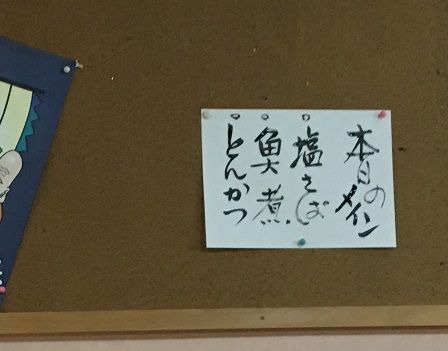 本日の
メイン
○塩さば
○魚煮
○とんかつ